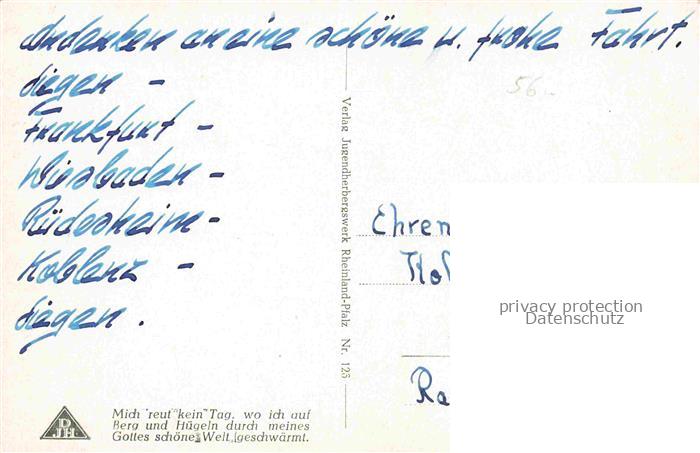 Andenken an eine schöne u. frohe Fahrt.
Siegen -
Frankfurt -
Wiesbaden -
Rüdesheim -
Koblenz -
Siegen.
56
Verlag Jugendherbergswerk Rheinland-Pfalz Nr. 125
Ehren
Kob
Ra
privacy protection
Datenschutz
DJH
Mich reut kein Tag, wo ich auf
Berg und Hügeln durch meines
Gottes schöne Welt geschwärmt.